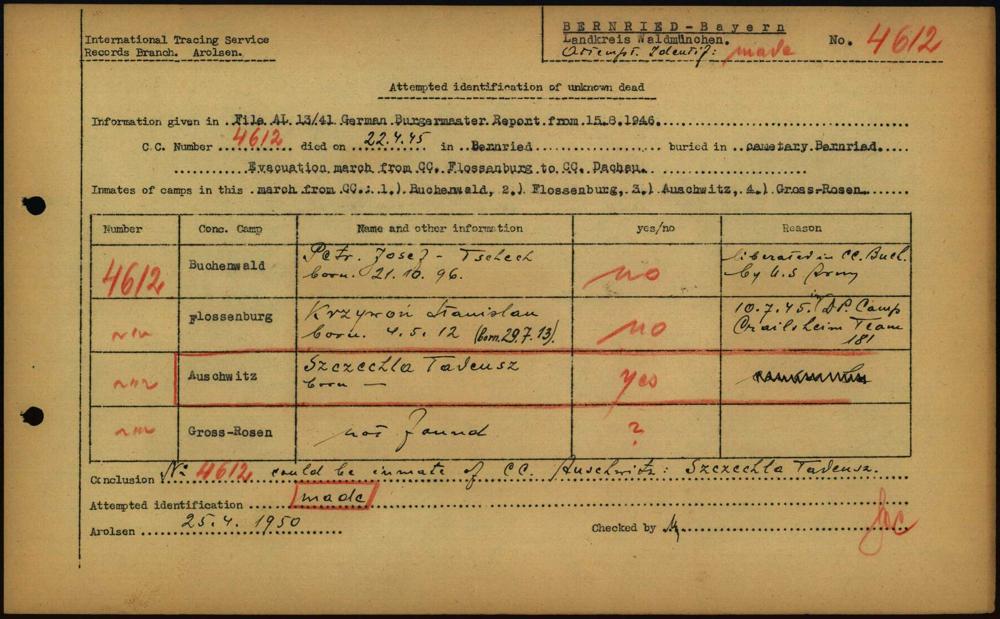 International Tracing Service
Records Branch. Arolsen.
BERNRIED-Bayern
Landkreis Waldmünchen.
Attempt. Identif: made
No. 4612
Attempted identification of unknown dead
Information given in ..File AL 13/41 German Burgermaster Report from 15.8.1946.
C.C. Number 4612 died on 22.4.45 in ..Bernried............ buried in ..cemetary Bernried.
Evacuation march from CC. Flossenburg to CC. Dachau.
Inmates of camps in this .march from CC.: 1.) Buchenwald, 2.) Flossenburg, 3.) Auschwitz, 4.) Gross-Rosen.
Number Conc. Camp Name and other information yes/no Reason
4612 Buchenwald Petr. Josef - Tschech born. 21.10.96. no liberated in CC. Buch. by U.S Army
-"- Flossenburg Krzyroń Stanislan born. 4.5.12 (born.29.7.13). no 10.7.45. in DP. Camp Crailsheim Team 181
-"- Auschwitz Szczechla Tadeusz born — yes
-"- Gross-Rosen not found ?
Conclusion No 4612 could be inmate of CC. Auschwitz: Szczechla Tadeusz.
Attempted identification made
Arolsen 25.4.1950 Checked by